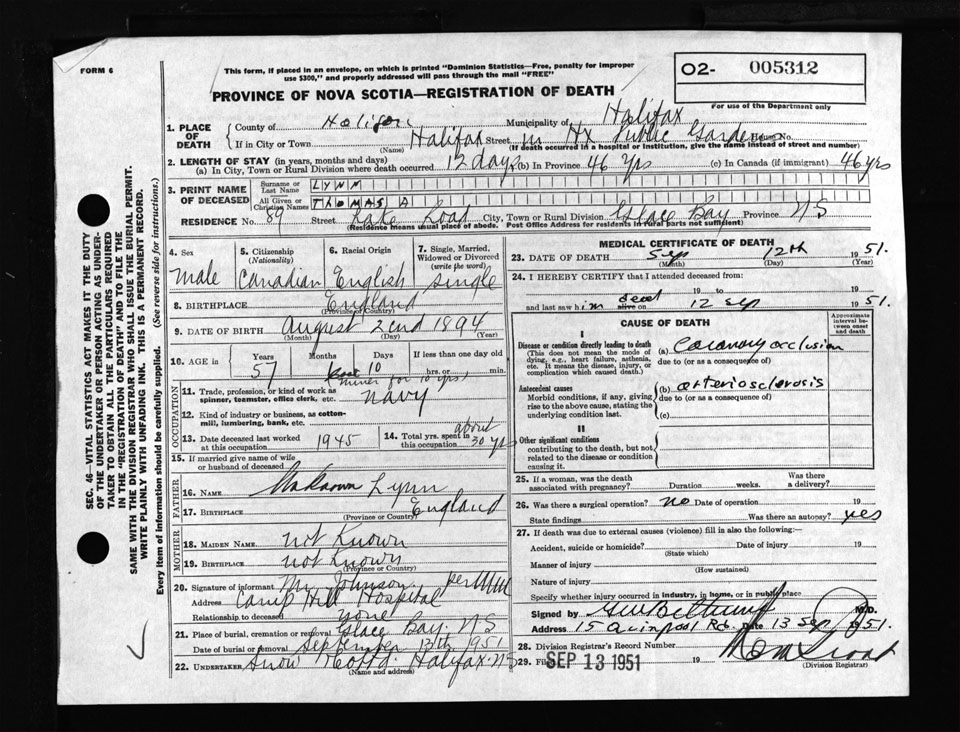 FORM 6
This form, if placed in an envelope, on which is printed "Dominion Statistics—Free, penalty for improper
use $300," and properly addressed will pass through the mail "FREE"
PROVINCE OF NOVA SCOTIA—REGISTRATION OF DEATH
O2- 005312
For use of the Department only
1. PLACE OF DEATH
County of Halifax Municipality of Halifax
If in City or Town Halifax Street in Hx Public Gardens House No.
(Name) (If death occurred in a hospital or institution, give the name instead of street and number)
2. LENGTH OF STAY (in years, months and days)
(a) In City, Town or Rural Division where death occurred 12 days (b) In Province 46 Yrs (c) In Canada (if immigrant) 46 yrs
3. PRINT NAME OF DECEASED
Surname or Last Name LYNN
All Given or Christian Names THOMAS A
RESIDENCE No. 89 Street Lake Road City, Town or Rural Division Glace Bay Province NS
(Residence means usual place of abode. Post Office Address for residents in rural parts not sufficient)
4. Sex
male
5. Citizenship (Nationality)
Canadian
6. Racial Origin
English
7. Single, Married, Widowed or Divorced (write the word)
Single
8. BIRTHPLACE England
(Province or Country)
9. DATE OF BIRTH August 22nd 1894
(Month) (Day) (Year)
10. AGE in Years Months Days If less than one day old
57 10 hrs. or min.
miner for 10 yrs,
11. Trade, profession, or kind of work as spinner, teamster, office clerk, etc. navy
12. Kind of industry or business, as cotton-mill, lumbering, bank, etc.
13. Date deceased last worked at this occupation 1945
14. Total yrs. spent in this occupation about 30 yrs
OCCUPATION
15. If married give name of wife or husband of deceased
FATHER
16. NAME Unknown Lynn
17. BIRTHPLACE England
(Province or Country)
MOTHER
18. MAIDEN NAME not Known
19. BIRTHPLACE not Known
(Province or Country)
20. Signature of informant Mr Johnson. per
Address Camp Hill Hospital
Relationship to deceased none
21. Place of burial, cremation or removal Glace Bay. N.S
Date of burial or removal September 13th 1951
22. UNDERTAKER Snow Halifax NS
(Name and address)
MEDICAL CERTIFICATE OF DEATH
23. DATE OF DEATH Sep 12th 1951.
(Month) (Day) (Year)
24. I HEREBY CERTIFY that I attended deceased from
19 to 19
and last saw him dead alive on 12 sep 1951.
CAUSE OF DEATH
Approximate interval between onset and death
I
Disease or condition directly leading to death
(This does not mean the mode of dying, e.g., heart failure, asthenia, etc. It means the disease, injury, or complication which caused death.)
(a) Coronary occlusion
due to (or as a consequence of)
Antecedent causes
Morbid conditions, if any, giving rise to the above cause, stating the underlying condition last.
(b) arteriosclerosis
due to (or as a consequence of)
(c)
II
Other significant conditions
contributing to the death, but not related to the disease or condition causing it.
25. If a woman, was the death associated with pregnancy? Duration weeks. Was there a delivery?
26. Was there a surgical operation? no Date of operation 19
State findings Was there an autopsy? yes
27. If death was due to external causes (violence) fill in also the following:—
Accident, suicide or homicide? Date of injury 19
(State which)
Manner of injury
(How sustained)
Nature of injury
Specify whether injury occurred in industry, in home, or in public place
Signed by M.D.
Address 15 Quinpool Rd. Date 13 Sep 1951.
28. Division Registrar's Record Number
29. Filed SEP 13 1951
(Division Registrar)
SEC. 46—VITAL STATISTICS ACT MAKES IT THE DUTY
OF THE UNDERTAKER OR PERSON ACTING AS UNDER-
TAKER TO OBTAIN ALL THE PARTICULARS REQUIRED
IN THE "REGISTRATION OF DEATH" AND TO FILE THE
SAME WITH THE DIVISION REGISTRAR WHO SHALL ISSUE THE BURIAL PERMIT.
WRITE PLAINLY WITH UNFADING INK. THIS IS A PERMANENT RECORD.
Every item of information should be carefully supplied. (See reverse side for instructions.)